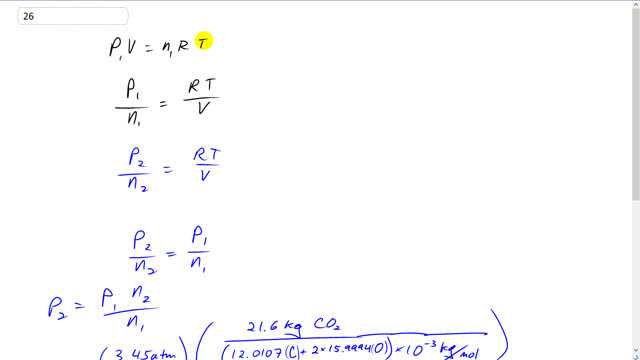 26
P₁V = n₁ R T
P₁/n₁ = RT/V
P₂/n₂ = RT/V
P₂/n₂ = P₁/n₁
P₂ = P₁ n₂/n₁
21.6 kg CO₂
(3.45atm) ( (12.0107(C)+2×15.9994(O))×10⁻³ kg/mol )